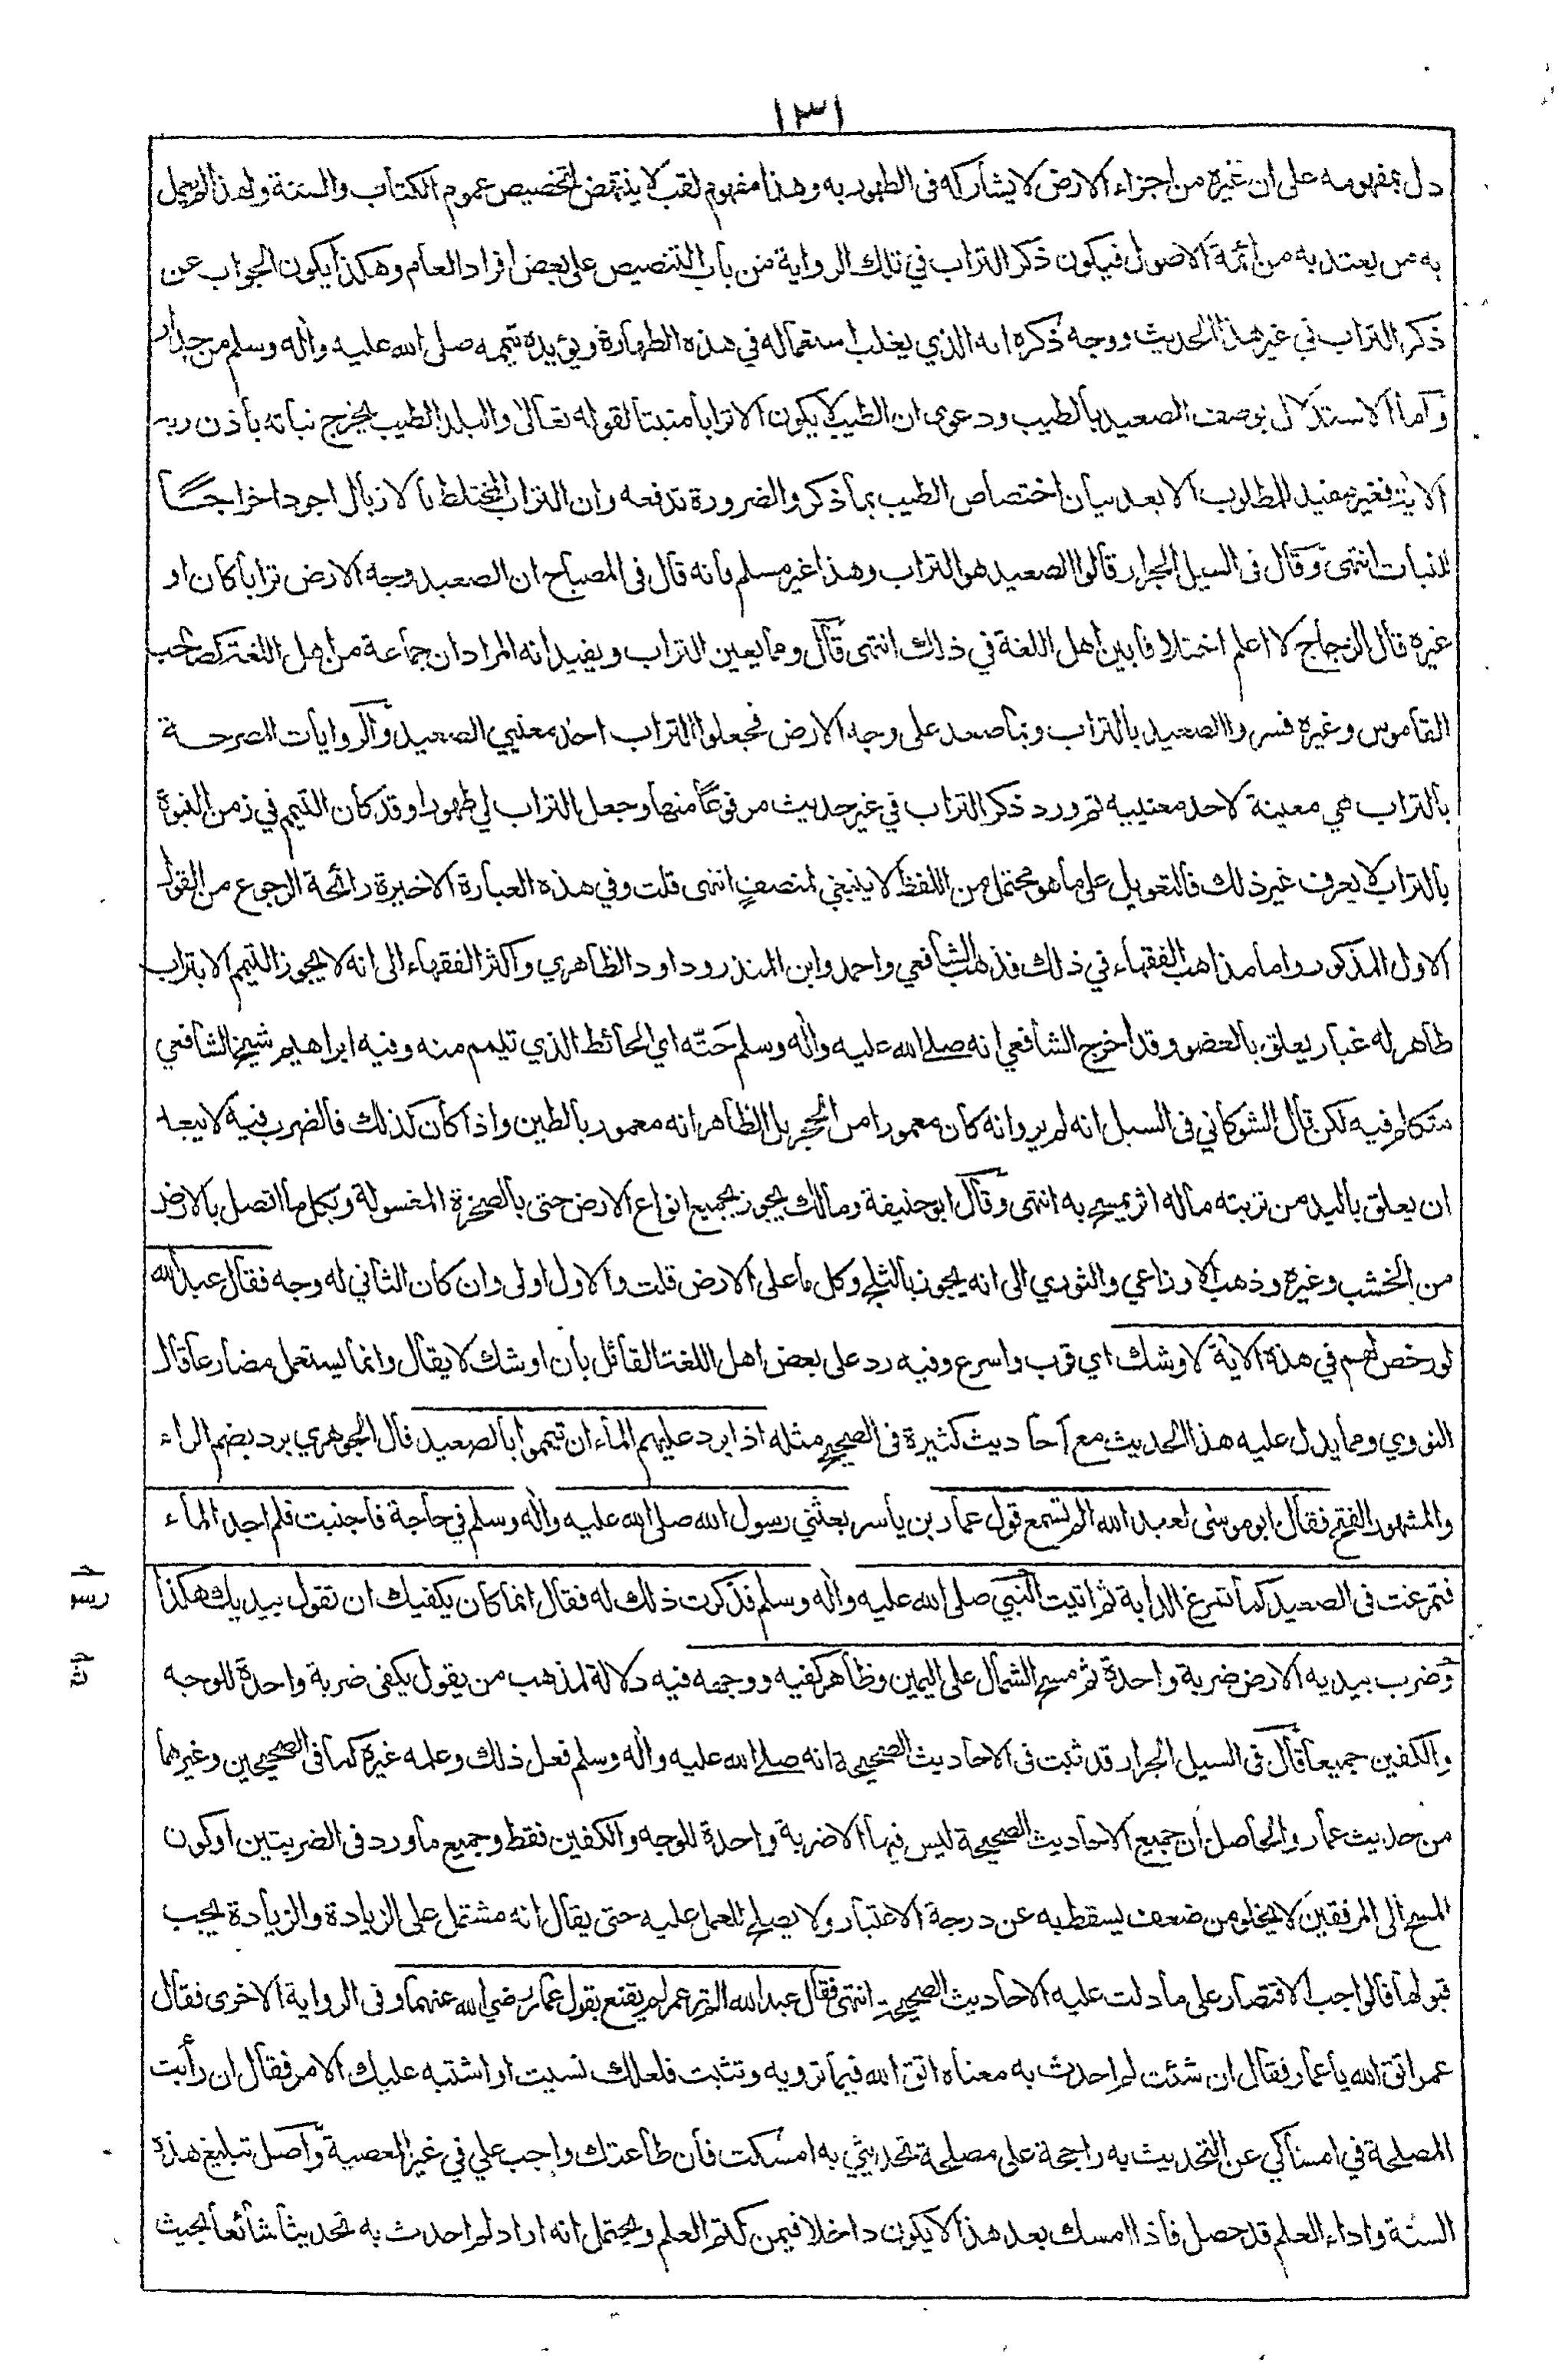 ١٣١
دل بمفهومه على ان غيره من اجزاء الارض لا يشاركه فى الطهورية وهذا مفهوم لقب لا ينتهض لتخصيص عموم الكتاب والسنة ولهذا لم يعمل
به من يعتد به من ائمة الاصول فيكون ذكر التراب في تلك الرواية من باب التنصيص على بعض افراد العام وهكذا يكون الجواب عن
ذكر التراب في غير هذا الحديث ووجه ذكره انه الذي يغلب استعماله في هذه الطهارة ويؤيده تيممه صلى الله عليه واله وسلم من جدار
واما الاستدلال بوصف الصعيد بالطيب ودعوى ان الطيب لا يكون الا ترابا منبتا لقوله تعالى والبلد الطيب يخرج نباته باذن ربه
الاية فغير مفيد للمطلوب الا بعد بيان اختصاص الطيب بما ذكر والضرورة تدفعه وان التراب المختلط بالازبال اجود اخراجا
للنبات انتهى وقال فى السيل الجرار قالوا الصعيد هو التراب وهذا غير مسلم فانه قال فى المصباح ان الصعيد وجه الارض ترابا كان او
غيره قال الزجاج لا اعلم اختلافا بين اهل اللغة في ذلك انتهى قال ومما يعين التراب ويفيد انه المراد ان جماعة من اهل اللغة كصاحب
القاموس وغيره فسروا الصعيد بالتراب وبما صعد على وجه الارض فجعلوا التراب احد معنيي الصعيد والروايات المصرحة
بالتراب هي معينة لاحد معنييه ثم ورد ذكر التراب في غير حديث مرفوعا منها وجعل التراب لي طهورا وقد كان التيمم في زمن النبوة
بالتراب لا يعرف غير ذلك فالتعويل على ما هو محتمل من اللفظ لا ينبغي لمنصف انتهى قلت وفي هذه العبارة الاخيرة رائحة الرجوع من القول
الاول المذكور واما مذاهب الفقهاء في ذلك فذهب الشافعي واحمد وابن المنذر وداود الظاهري واكثر الفقهاء الى انه لا يجوز التيمم الا بتراب
طاهر له غبار يعلق بالعضو وقد اخرج الشافعي انه صلى الله عليه واله وسلم حَتّه اي الحائط الذي تيمم منه وفيه ابراهيم شيخ الشافعي
متكلم فيه لكن قال الشوكاني فى السيل انه لم يرو انه كان معمورا من الحجر بل الظاهر انه معمور بالطين واذا كان كذلك فالضرب فيه لا يبعد
ان يعلق باليد من تربته ما له اثر يمسح به انتهى وقال ابو حنيفة ومالك يجوز بجميع انواع الارض حتى بالصخرة المغسولة وبكل ما اتصل بالارض
من الخشب وغيره وذهب الاوزاعي والثوري الى انه يجوز بالثلج وكل ما على الارض قلت والاول اولى وان كان الثاني له وجه فقال عبد الله
لو رخص لهم في هذه الاية لاوشك اي قرب واسرع وفيه رد على بعض اهل اللغة القائل بان اوشك لا يقال وانما يستعمل مضارعا قال
النووي ومما يدل عليه هذا الحديث مع احاديث كثيرة فى الصحيح مثله اذا برد عليهم الماء ان تيمموا بالصعيد قال الجوهري برد بضم الراء
والمشهور الفتح فقال ابو موسى لعبد الله الم تسمع قول عمار بن ياسر بعثني رسول الله صلى الله عليه واله وسلم في حاجة فاجنبت فلم اجد الماء
فتمرغت فى الصعيد كما تمرغ الدابة ثم اتيت النبي صلى الله عليه واله وسلم فذكرت ذلك له فقال انما كان يكفيك ان تقول بيديك هكذا
وضرب بيديه الارض ضربة واحدة ثم مسح الشمال على اليمين وظاهر كفيه ووجهه فيه دلالة لمذهب من يقول يكفى ضربة واحدة للوجه
والكفين جميعا قال فى السيل الجرار قد ثبت فى الاحاديث الصحيحة انه صلى الله عليه واله وسلم فعل ذلك وعلمه غيره كما فى الصحيحين وغيرهما
من حديث عمار والحاصل ان جميع الاحاديث الصحيحة ليس فيها الا ضربة واحدة للوجه والكفين فقط وجميع ما ورد فى الضربتين او كون
المسح الى المرفقين لا يخلو من ضعف يسقط به عن درجة الاعتبار ولا يصلح للعمل عليه حتى يقال انه مشتمل على الزيادة والزيادة يجب
قبولها فالواجب الاقتصار على ما دلت عليه الاحاديث الصحيحة انتهى فقال عبد الله الم تر عمر لم يقنع بقول عمار رضي الله عنهما وفى الرواية الاخرى فقال
عمر اتق الله يا عمار فقال ان شئت لم احدث به معناه اتق الله فيما ترويه وتثبت فلعلك نسيت او اشتبه عليك الامر فقال ان رأيت
المصلحة في امساكي عن التحديث به راجحة على مصلحة تحديثي به امسكت فان طاعتك واجب علي في غير المعصية واصل تبليغ هذه
السنة واداء العلم قد حصل فاذا امسك بعد هذا لا يكون داخلا فيمن كتم العلم ويحتمل انه اراد لم احدث به تحديثا شائعا بحيث